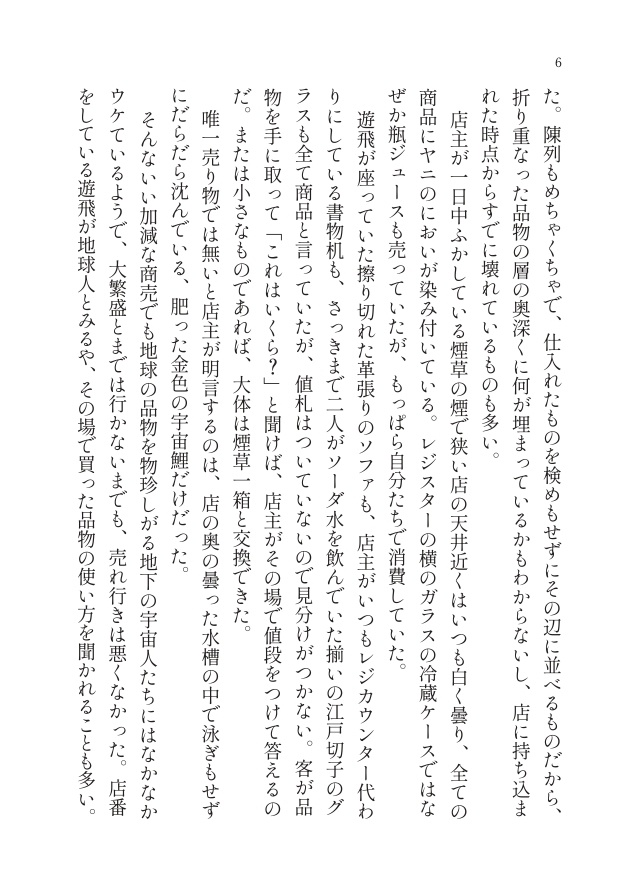 6
た。陳列もめちゃくちゃで、仕入れたものを検めもせずにその辺に並べるものだから、
折り重なった品物の層の奥深くに何が埋まっているかもわからないし、店に持ち込ま
れた時点からすでに壊れているものも多い。
店主が一日中ふかしている煙草の煙で狭い店の天井近くはいつも白く曇り、全ての
商品にヤニのにおいが染み付いている。レジスターの横のガラスの冷蔵ケースではな
ぜか瓶ジュースも売っていたが、もっぱら自分たちで消費していた。
遊飛が座っていた擦り切れた革張りのソファも、店主がいつもレジカウンター代わ
りにしている書物机も、さっきまで二人がソーダ水を飲んでいた揃いの江戸切子のグ
ラスも全て商品と言っていたが、値札はついていないので見分けがつかない。客が品
物を手に取って「これはいくら?」と聞けば、店主がその場で値段をつけて答えるの
だ。または小さなものであれば、大体は煙草一箱と交換できた。
唯一売り物では無いと店主が明言するのは、店の奥の曇った水槽の中で泳ぎもせず
にだらだら沈んでいる、肥った金色の宇宙鯉だけだった。
そんないい加減な商売でも地球の品物を物珍しがる地下の宇宙人たちにはなかなか
ウケているようで、大繁盛とまでは行かないまでも、売れ行きは悪くなかった。店番
をしている遊飛が地球人とみるや、その場で買った品物の使い方を聞かれることも多い。